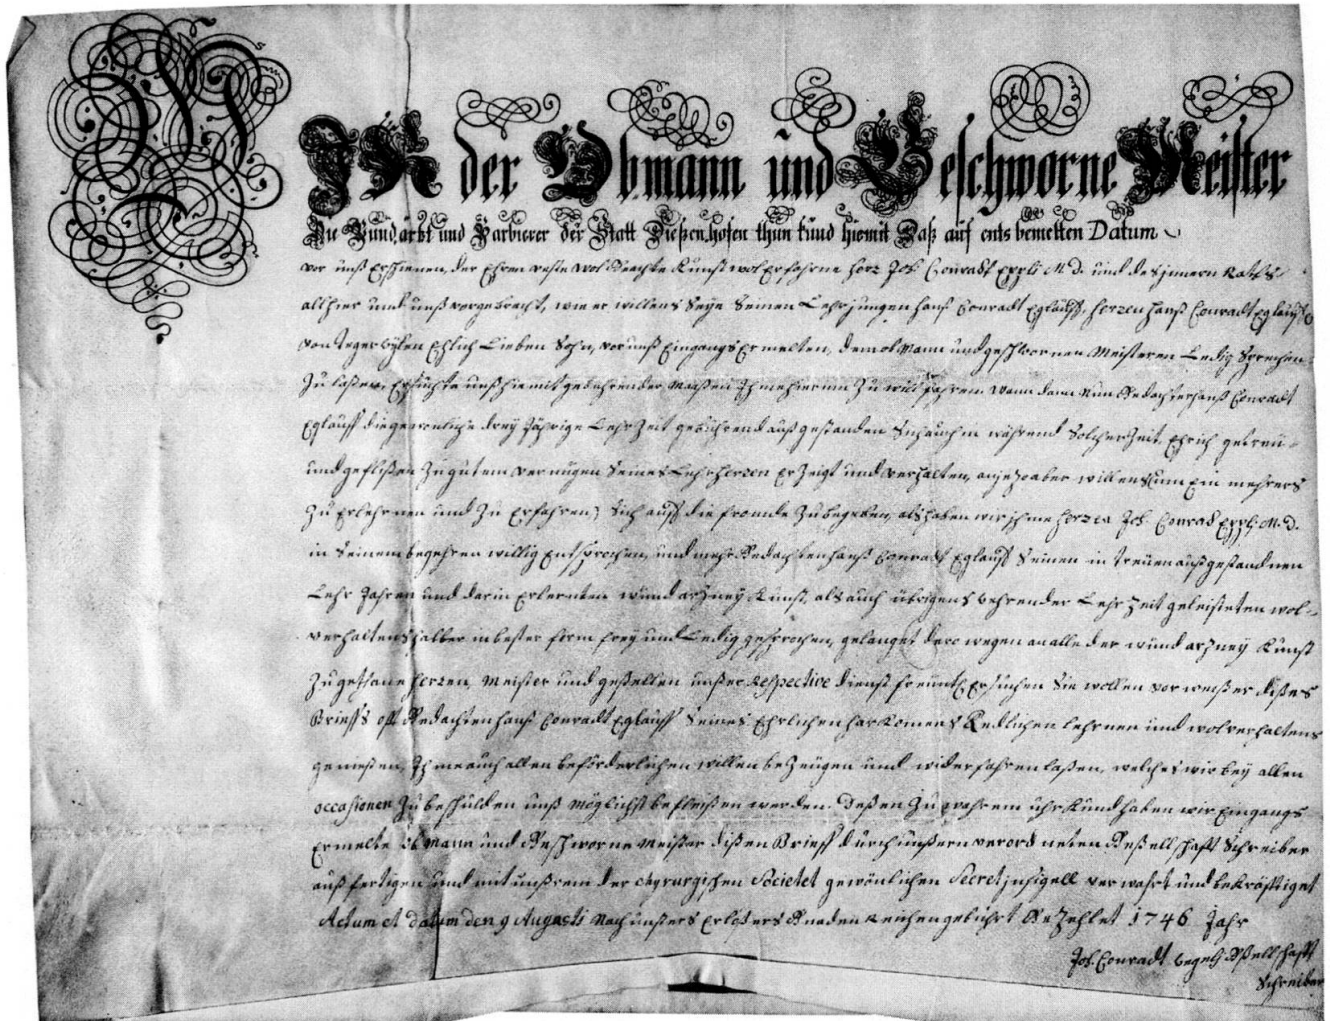 WIR der Obmann und Geschworne Meister
Der Wundärtzt und Barbierer der Statt Dießenhofen thun kund hiemit Daß auf ents bemelten Datum
vor unß Erschienen, der Ehren veste wol Geachte Kunst wol Erfahrne Herr Joh: Conradt Eppli M. D. und des jnnern Raths
allhier und unß vorgebracht, wie er willens Seye Seinen Lehrjungen Hanß Conradt Eglauff, Herren Hanß Conradt Eglauff
von Tegerwylen Ehlich Lieben Sohn, vor unß Eingangs Ermelten, dem obmann und geschwornen Meisteren Ledig Sprechen
Zu laßen, Ersuchte unß hiemit gebührender Maaßen Jhme hierinn Zu willfahren. Wann dann Nun Gedachter Hanß Conradt
Eglauff die gewonliche drey Jährige Lehr Zeit gebührend auß gestanden Sich auch in während Solcher Zeit, Ehrlich getreü
und geflißen Zu gutem vernügen Seines Lehrherren Erzeigt und verhalten, anjezo aber willens Um Ein mehrers
Zu Erlehrnen und Zu Erfahren, Sich auff die fremde Zu begeben, als haben wir jhme Herren Joh. Conrad Eppli M. D.
in Seinem begehren willig Entsprochen, und mehr Gedachten Hanß Conradt Eglauff Seinen in treüen auß gestandnen
Lehr Jahren und darin Erlernten wund arzney Kunst, als auch übrigens wehrender Lehr Zeit geleisteten wol-
verhaltens halber in bester form frey und Ledig gesprochen, gelanget dero wegen an alle der wund arzney Kunst
Zugethane Herren, Meister und gesellen unßer Respective dienst freüntl. Ersuchen Sie wollen vorweißer dißes
Brieffs oft Gedachten Hanß Conradt Eglauff Seines Ehrlichen harkomens Redlichen lehrnen und wolverhaltens
genießen, Jhme auch allen beförderlichen willen bezeügen und widerfahren laßen, welches wir bey allen
occasionen Zu beschulden unß möglichst befleißen werden. Deßen Zu wahrem uhrkund haben wir Eingangs
Ermelte obmann und Geschworne Meister dißen Brieff durch unßern verordneten Gesellschafft Schreiber
auß fertigen und mit unßrem der chyrurgischen Societet gewönlichen Secret jnsigell verwahrt und bekräfftiget
Actum et datum den 9 Augusti Nach unßers Erlößers Gnaden Reichen gebührt Gezehlet 1746 Jahr
Joh. Conradt Gesellschafft
Schreiber